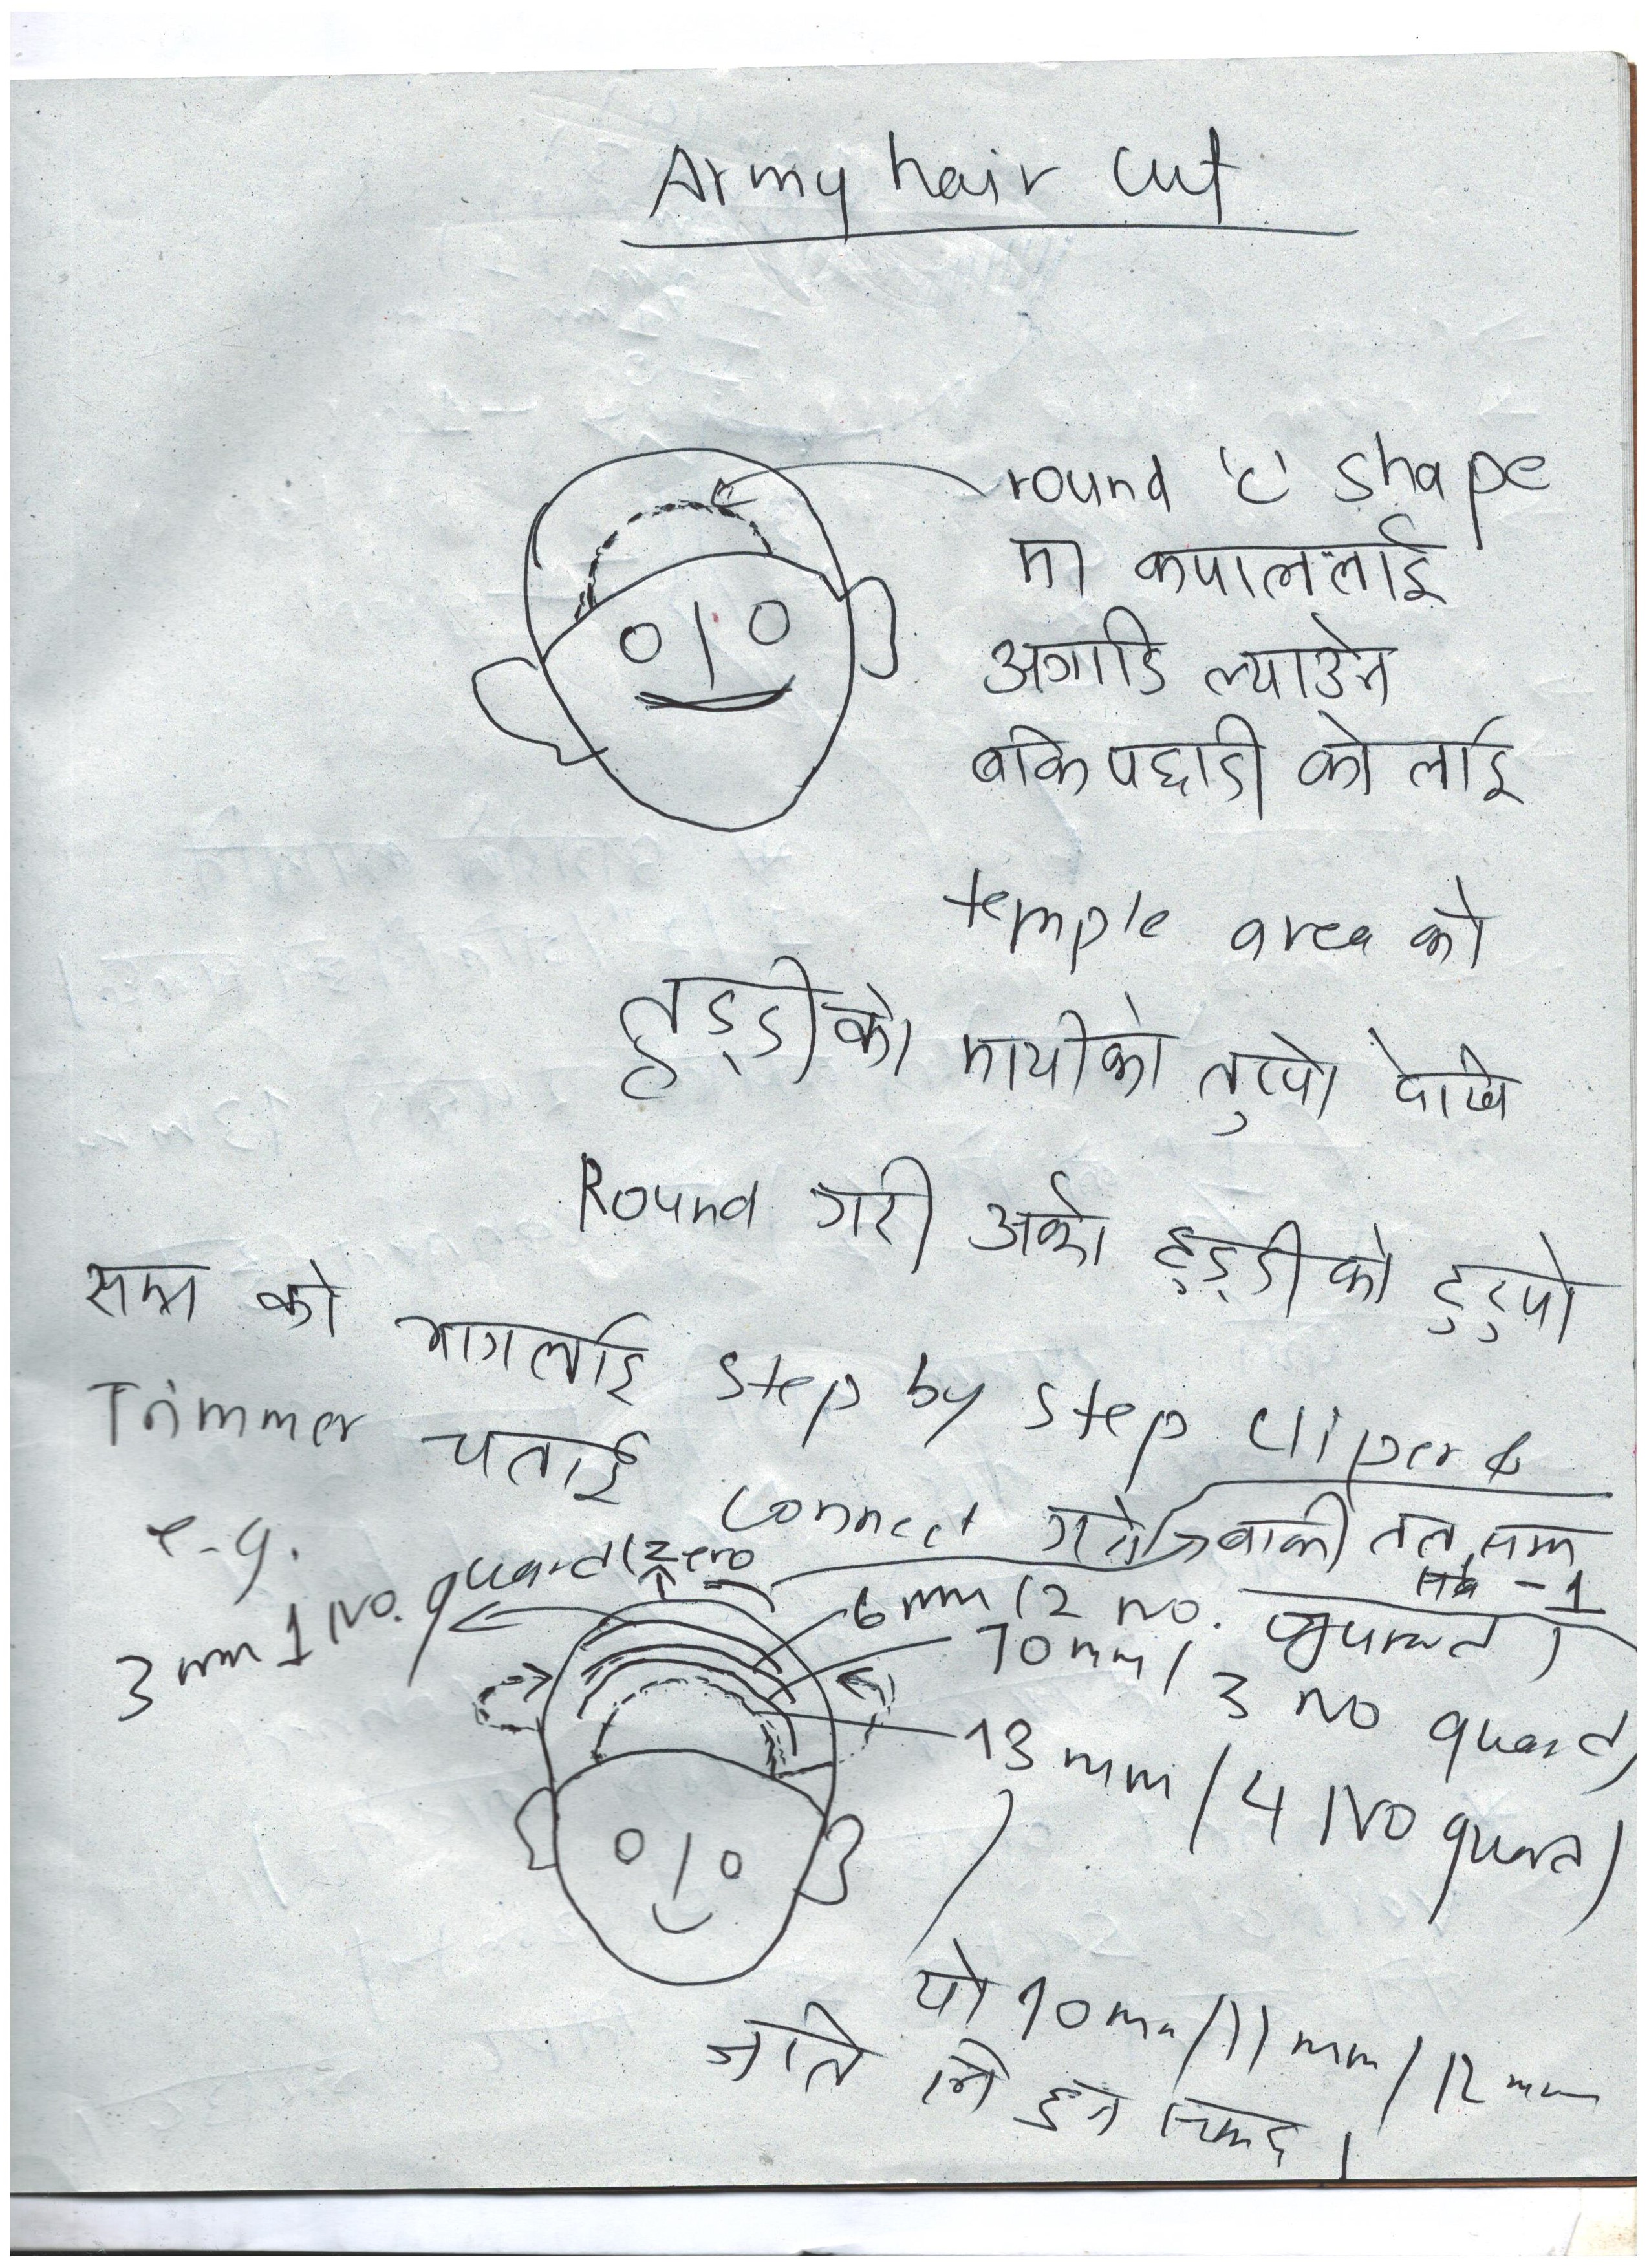 Army hair cut
round 'c' shape
मा कपाललाई
अगाडि ल्याउने
बाकि पछाडी को लाई
temple area को
हड्डीको माथीको टुप्पो देखि
Round गरी अर्को हड्डीको टुप्पो
सम्म को भागलाई step by step cliper &
Trimmer चलाई connect गर्ने बाकी तल सम्म
e.g.
- 1
3 mm 1 No. guard (zero
6 mm (2 no. guard)
10 mm / 3 NO guard)
13 mm / 4 NO guard)
यो 10 mm / 11 mm / 12 mm
जति नि हुन सक्छ ।